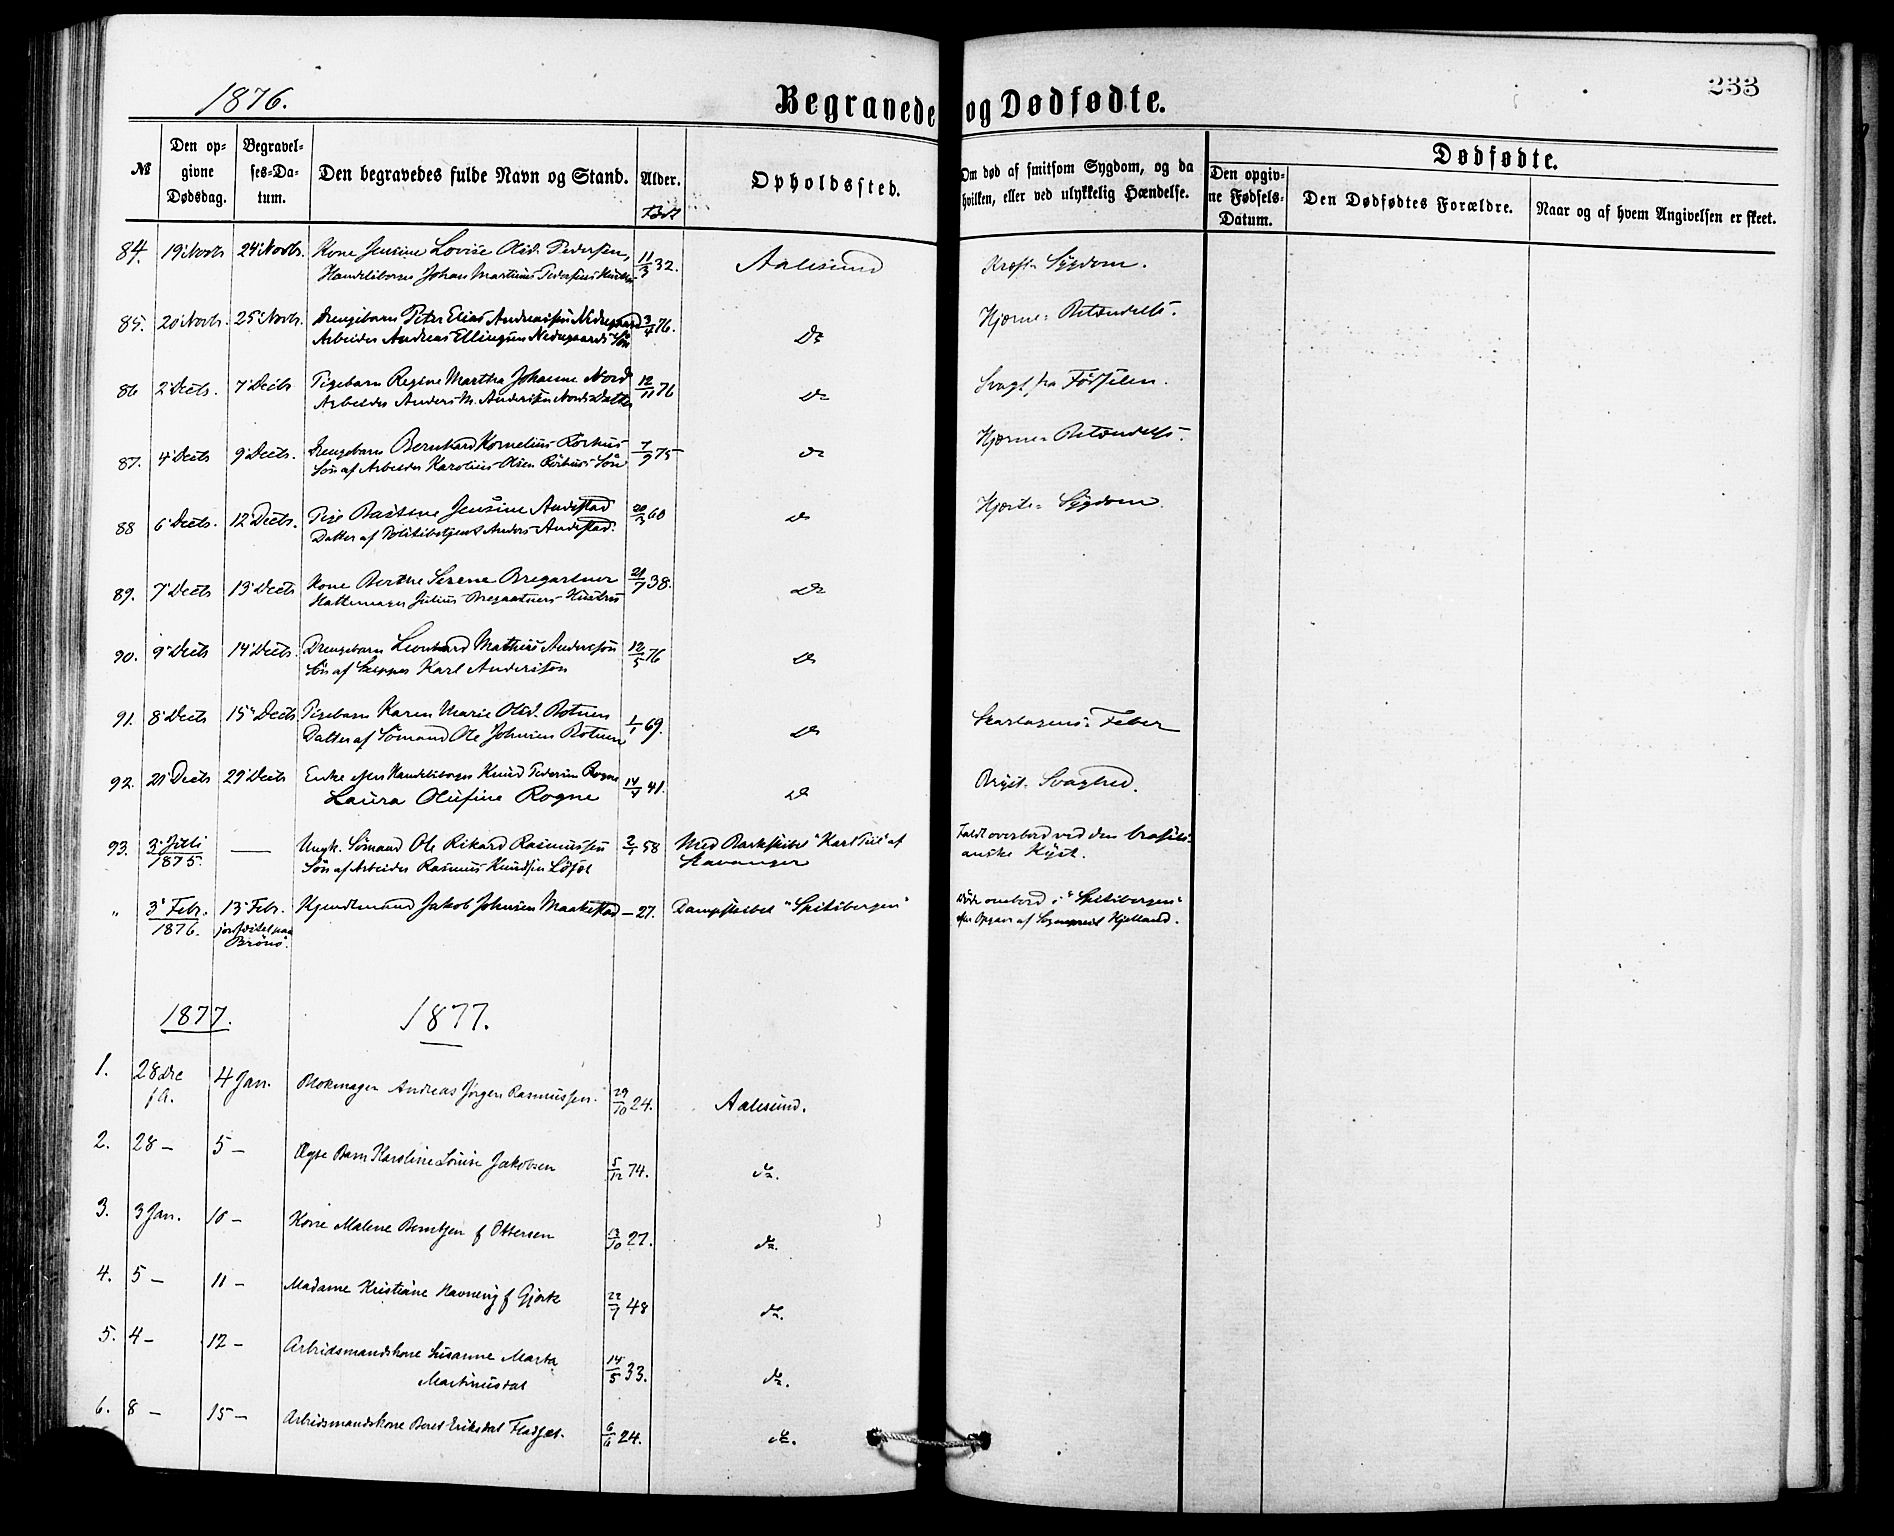 1876.
Begravede og Dødfødte.
233
№
Den op-
givne
Dødsdag.
Begravel-
ses-Da-
tum.
Den begravedes fulde Navn og Stand.
Alder.
Født
Opholdssted.
Om død af smitsom Sygdom, og da
hvilken, eller ved ulykkelig Hændelse.
Dødfødte.
Den opgiv-
ne Fødsels-
Datum.
Den Dødfødtes Forældre.
Naar og af hvem Angivelsen er skeet.
84. 19 Novb 24 Novb. Kone Jensine Lovise Olsd. Pedersen, 11/3 32. Aalesund Kræft-Sygdom.
Handelsborger Johan Martinus Pedersens Hustru
85. 20 Novb. 25 Novb. Drengebarn Peter Elias Andreassen Nedregaard 3/4 76. Do Hjerne-Betændelse.
Arbeider Andreas Ellingsen Nedregaards Søn
86 2 Decb. 7 Decb Pigebarn Regine Martha Johanne Nord 12/11 76 Do Svag fra Fødselen.
Arbeider Anders M. Andersen Nords Datter
87. 4 Decb 9 Decb. Drengebarn Bernhard Kornelius Rørhus 7/9 75 Do Hjerne-Betændelse.
Søn af Arbeider Karolius Olsen Rørhus Søn
88 6 Decb. 12 Decb. Pige Jensine Andestad 20/3 60 Do Hjerte-Sygdom.
Datter af Politibetjent Anders Andestad.
89. 7 Decb 13 Decb Kone Berthe Serene Bregartner 21/7 38. Do
Hattemager Julius Bregartners Hustru
90. 9 Decb 14 Decb. Drengebarn Leonhard Mathias Anderssøn 12/5 76 Do
Søn af Skipper Karl Anderssøn
91. 8 Decb 15 Decb Pigebarn Karen Marie Olsd. Botnen 1/1 69. Do Skarlagens-Feber
Datter af Sømand Ole Johnsen Botnen
92. 21 Decb 29 Decb Enke efter Handelsborger Knud Pedersen Rogne 14/4 41. Do Bryst-Svaghed.
Laura Olufine Rogne
93. 3 Juli — Ungk. Sømand Ole Rikard Rasmussen 2/1 58 Med Barkskibet "Karl" af Faldt overbord ved den brasili-
1875. Søn af Arbeider Rasmus Knudsen Stavanger anske Kyst.
" 3 Febr. 13 Febr. Jakob Johnsen Maakestad — 27. Dampskibet "Spitsbergen" Døde ombord i "Spitsbergen"
1876. jordfæstet paa efter Opgave af Sogneprest Kjelland.
Brønø.
1877. 1877.
1. 28 Dec 4 Jan. Blokmager Andreas Jørgen Rasmussen. 29/10 24. Aalesund.
f. A.
2. 28 — 5 — Pige Barn Karoline Lovise Jakobsen 5/12 74. do.
3. 3 Jan. 10 — Kone Malene Berntsen f Ottersen 13/10 27. do.
4. 5 — 11 — Madame Kristiane Havnevig f Gjørtz 22/7 48 do.
5. 4 — 12 — Arbeidsmandskone Susanne Marta 14/5 33. do.
Martinusdat
6. 8 — 15 — Arbeidsmandskone Beret Eriksdat Fladsæt. 6/6 24. do.